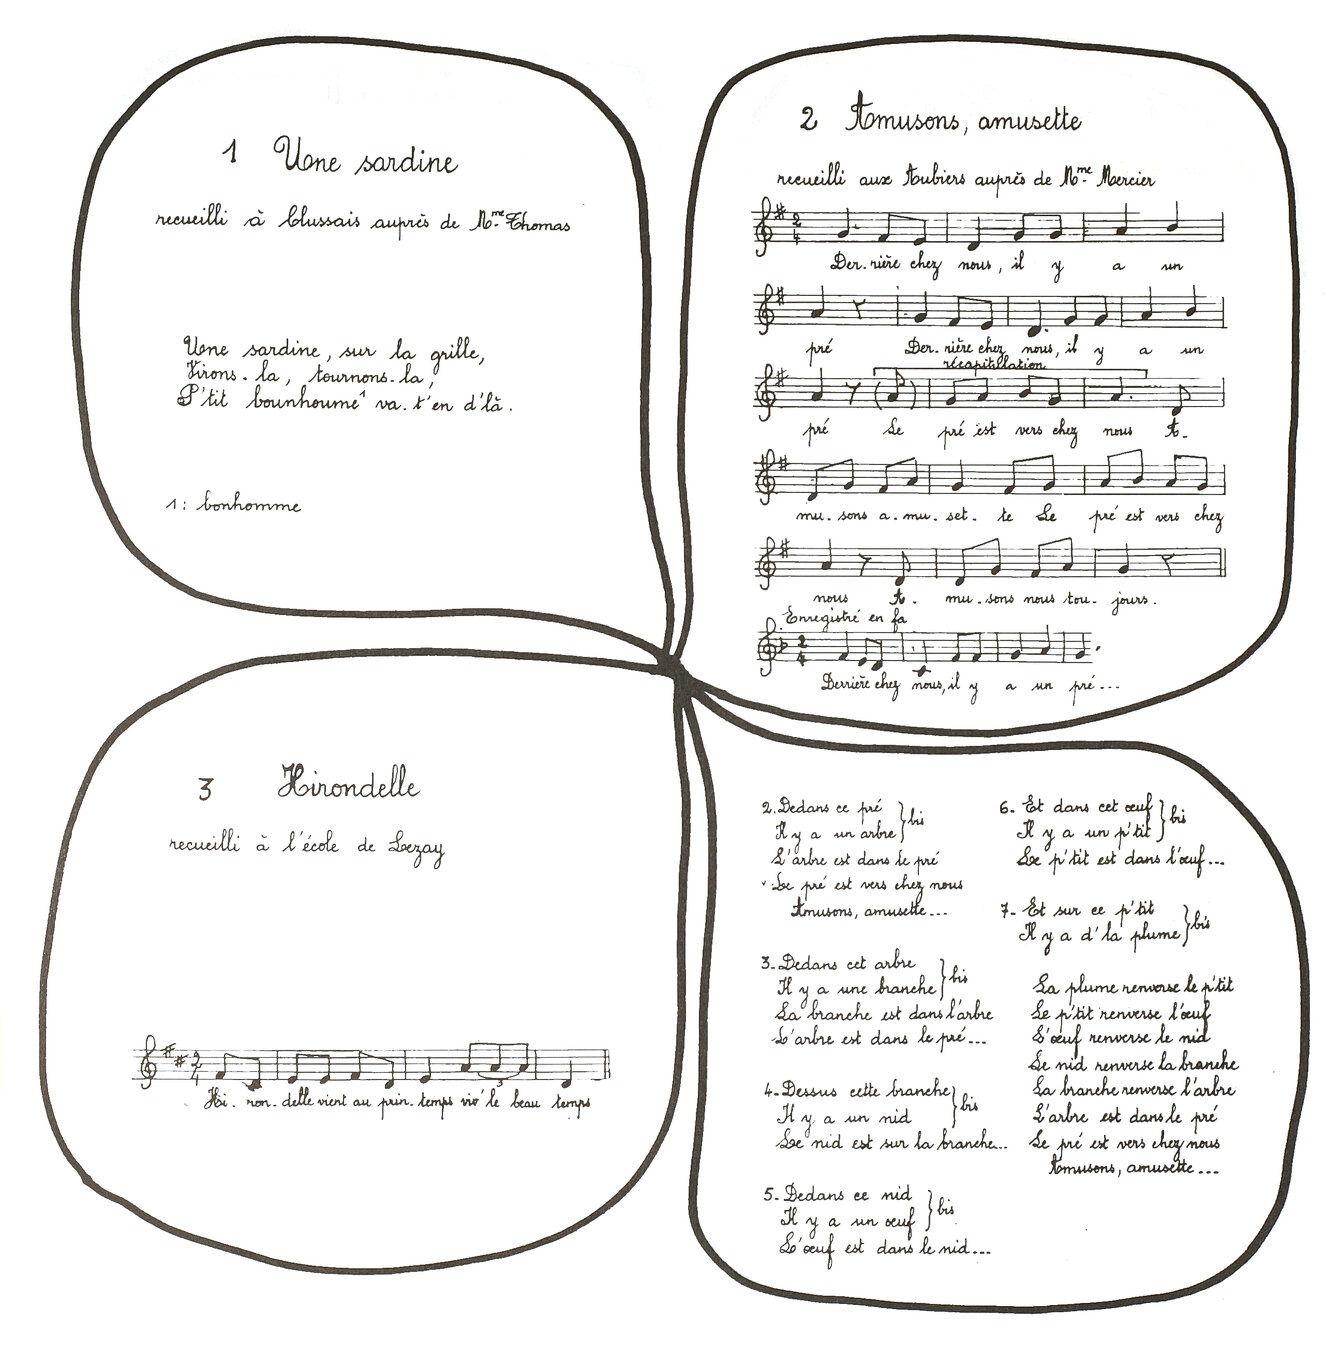 1 Une sardine
recueilli à Clussais auprès de Mme Thomas
Une sardine, sur la grille,
Virons-la, tournons-la,
P'tit bounhoume¹ va-t'en d'là.
1: bonhomme
2 Amusons, amusette
recueilli aux Aubiers auprès de Mme Mercier
2
4
Der-rière chez nous, il y a un
pré Der-rière chez nous, il y a un
récapitulation
pré Le pré est vers chez nous A-
mu-sons a-mu-set-te Le pré est vers chez
nous A-mu-sons nous tou-jours.
Enregistré en fa
2
4
Derrière chez nous, il y a un pré...
3 Hirondelle
recueilli à l'école de Lezay
2
4
3
Hi-ron-delle vient au prin-temps viv'le beau temps
2. Dedans ce pré
Il y a un arbre } bis
L'arbre est dans le pré
Le pré est vers chez nous
Amusons, amusette...
3. Dedans cet arbre
Il y a une branche } bis
La branche est dans l'arbre
L'arbre est dans le pré...
4. Dessus cette branche
Il y a un nid } bis
Le nid est sur la branche...
5. Dedans ce nid
Il y a un œuf } bis
L'œuf est dans le nid...
6. Et dans cet œuf
Il y a un p'tit } bis
Le p'tit est dans l'œuf...
7. Et sur ce p'tit
Il y a d'la plume } bis
La plume renverse le p'tit
Le p'tit renverse l'œuf
L'œuf renverse le nid
Le nid renverse la branche
La branche renverse l'arbre
L'arbre est dans le pré
Le pré est vers chez nous
Amusons, amusette...